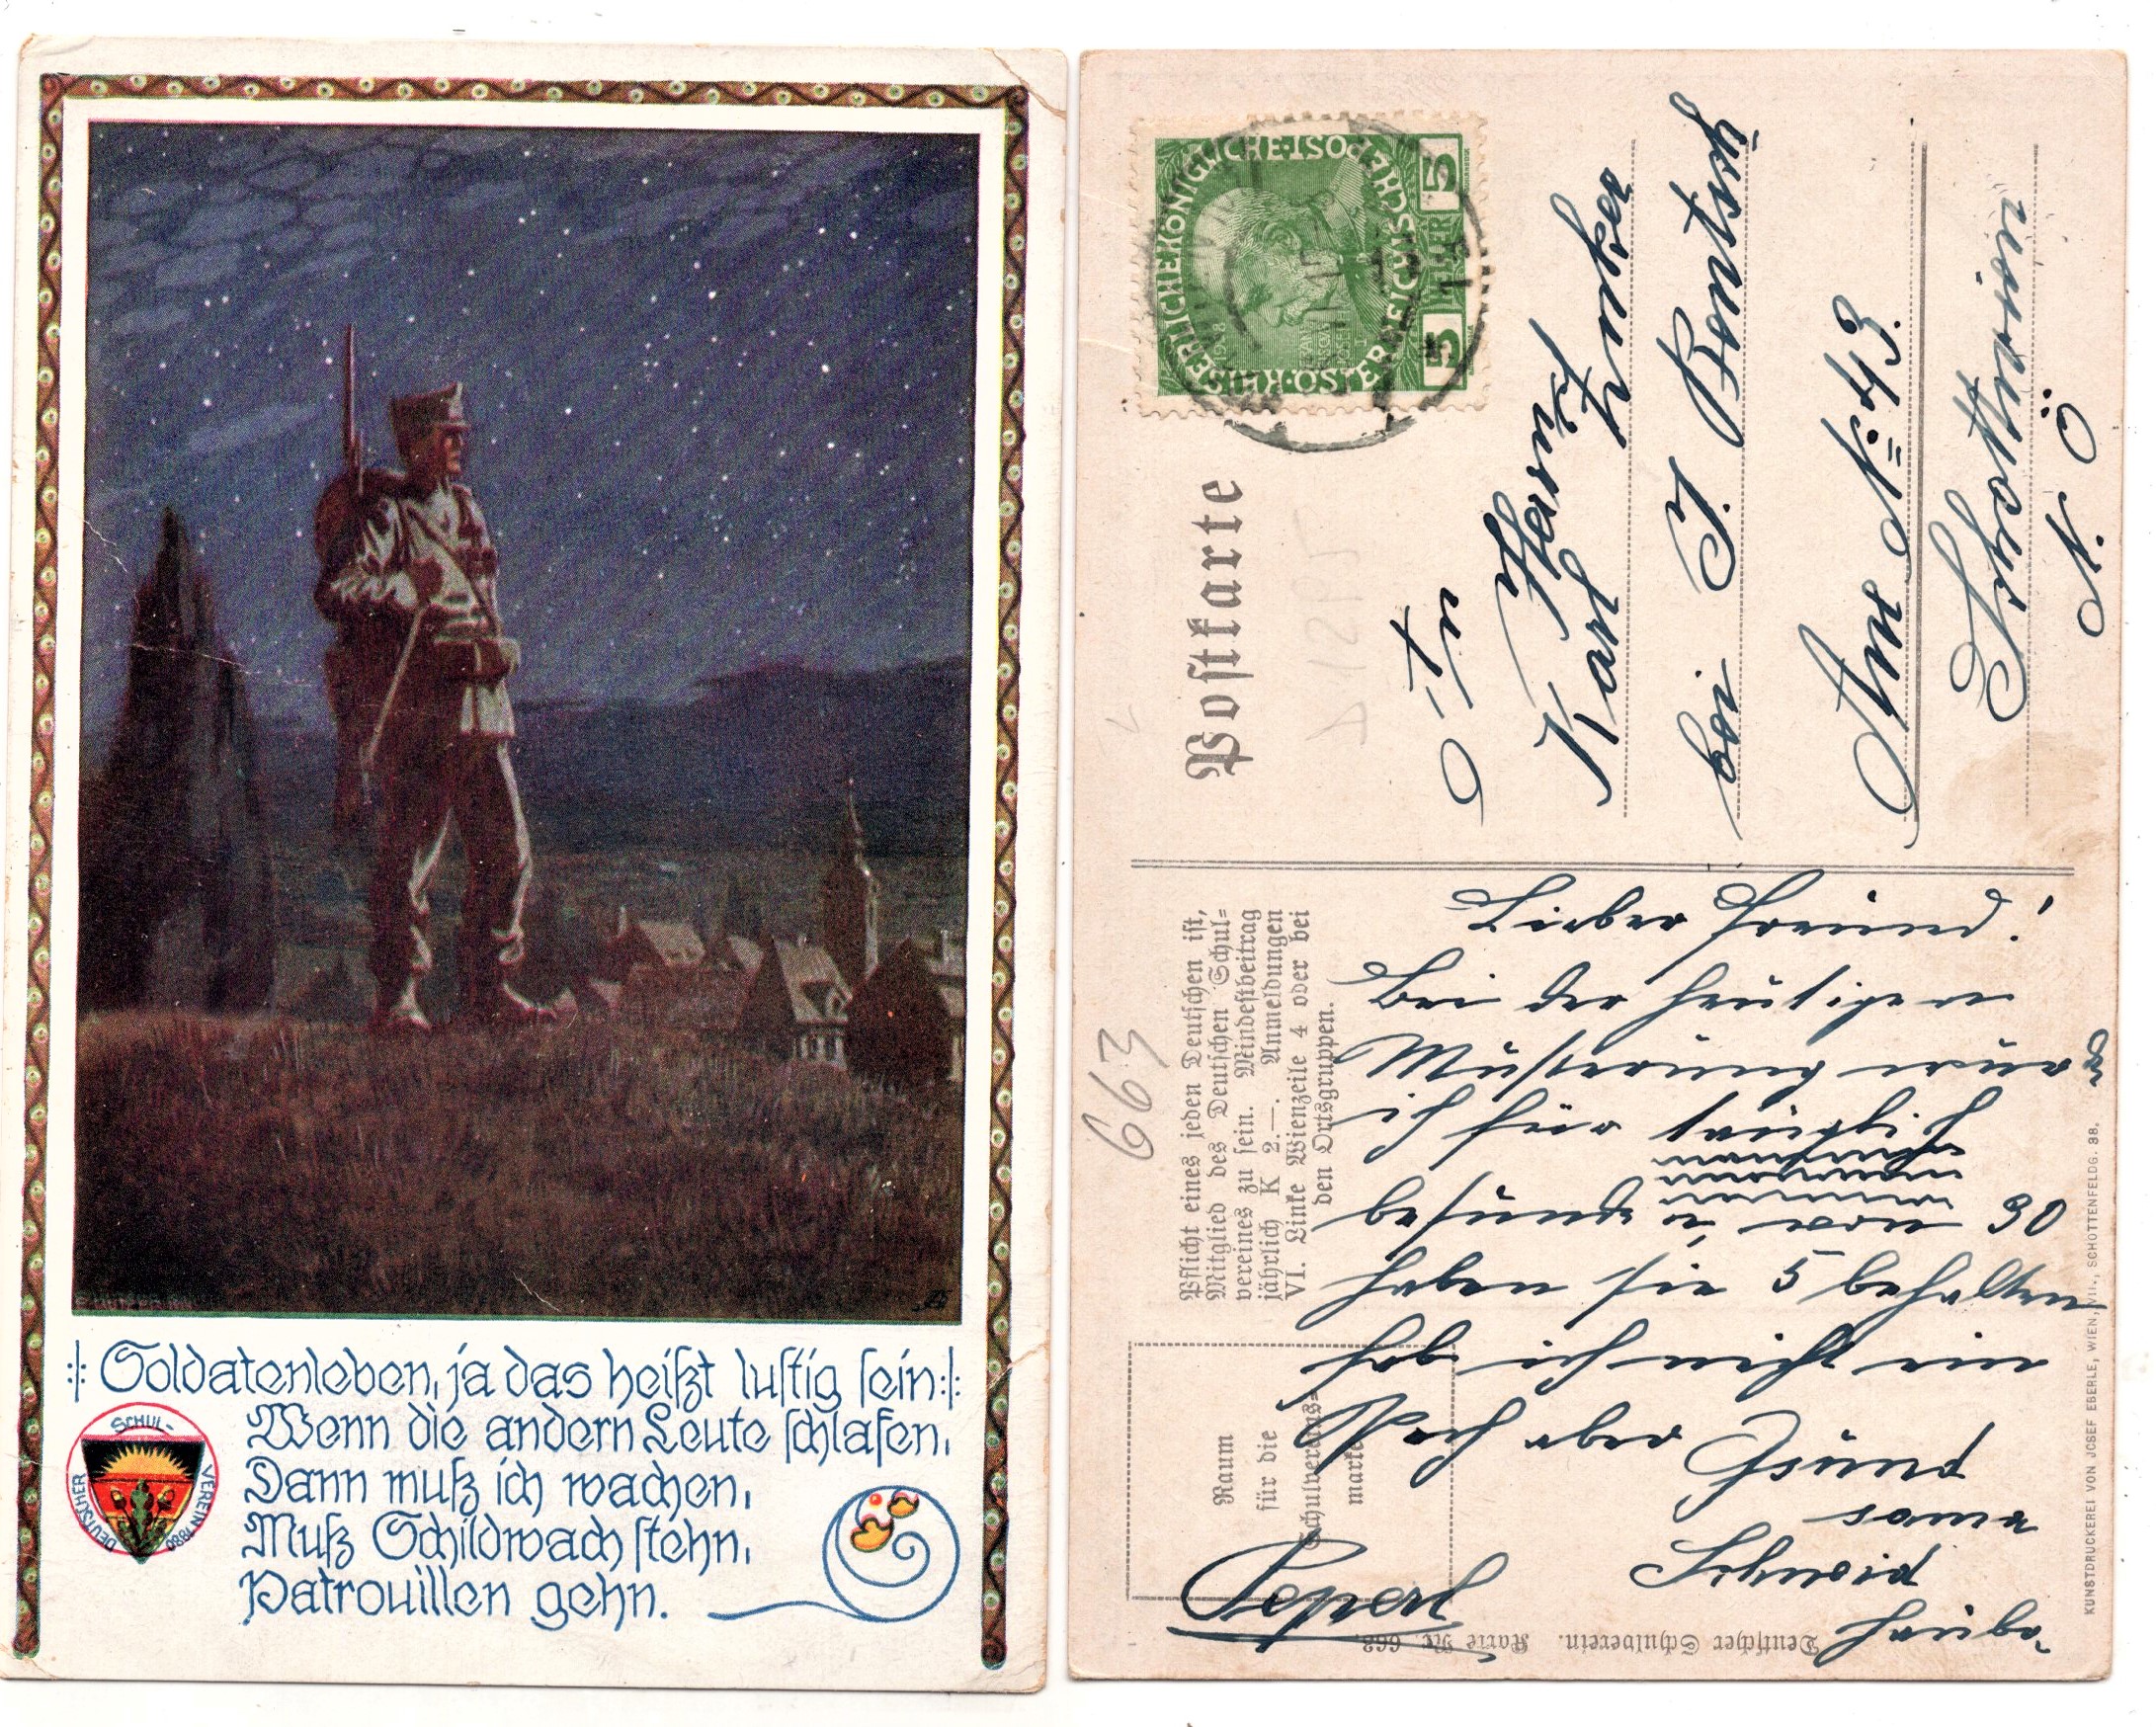 :|: Soldatenleben, ja das heißt lustig sein :|:
Wenn die andern Leute schlafen,
Dann muß ich wachen,
Muß Schildwach stehn,
Patrouillen gehn.
DEUTSCHER SCHUL-VEREIN 1880
Postkarte
KAISERLICHE KÖNIGLICHE ÖSTERREICHISCHE POST
5 HELLER 5
1908
An
Herrn
Karl Zunker
bei
Nr. 493
N. Ö.
Pflicht eines jeden Deutschen ist,
Mitglied des Deutschen Schul=
vereines zu sein. Mindestbeitrag
jährlich K 2.—. Anmeldungen
VI. Linke Wienzeile 4 oder bei
den Ortsgruppen.
663
Raum
für die
Schulvereins=
marke
Lieber Freund!
Bei der heutigen
Musterung wurde
ich für tauglich
befunden u. von 90
haben sie 5 behalten
hab ich nicht ein
Pech aber Gsund
sama
Schneid
hauba
Peperl
Deutscher Schulverein. Karte Nr. 663.
KUNSTDRUCKEREI VON JOSEF EBERLE, WIEN, VII., SCHOTTENFELDG. 38.